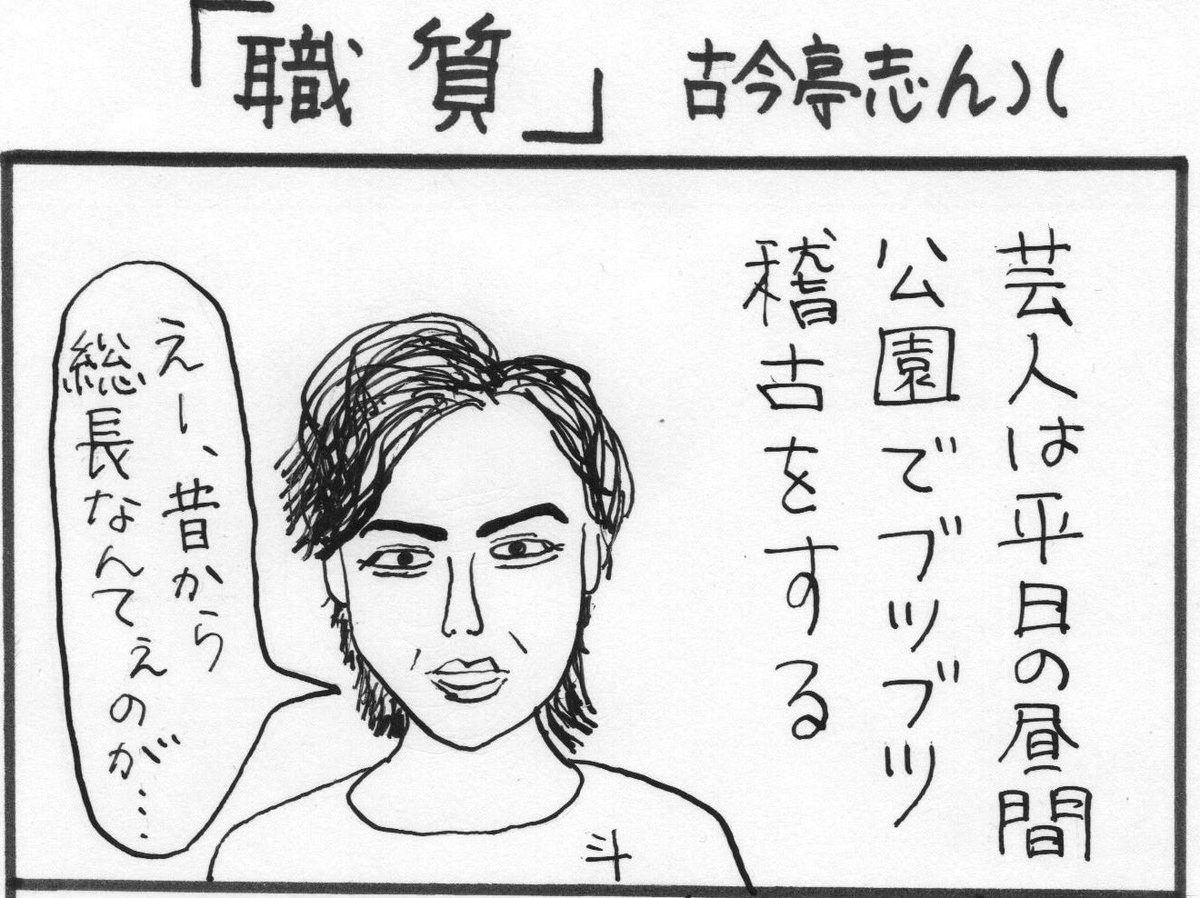 「職質」 古今亭志ん八
芸人は平日の昼間
公園でブツブツ
稽古をする
えー、昔から
総長なんてぇのが…
斗